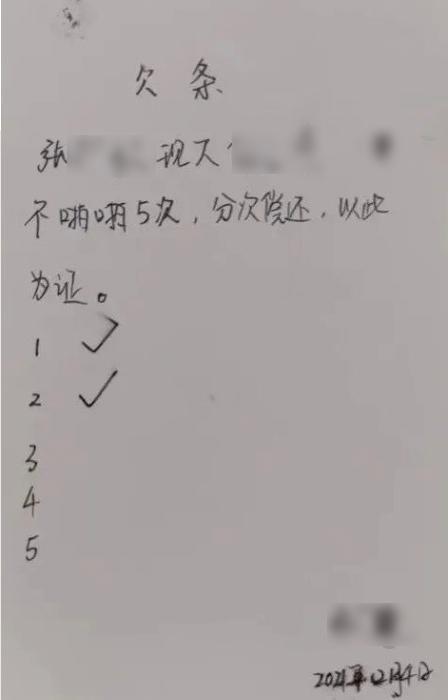 欠条
张 现欠
不啪啪5次，分次偿还，以此
为证。
1 ✓
2 ✓
3
4
5
2021年12月4日